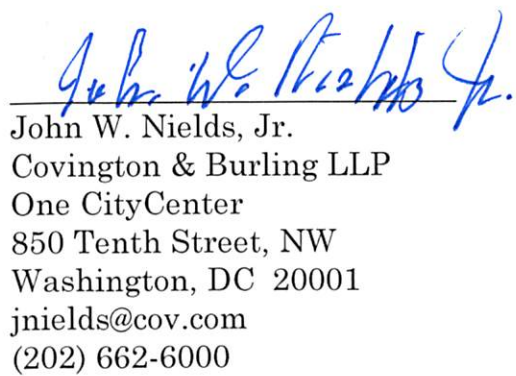 John W. Nields Jr.
John W. Nields, Jr.
Covington & Burling LLP
One CityCenter
850 Tenth Street, NW
Washington, DC  20001
jnields@cov.com
(202) 662-6000